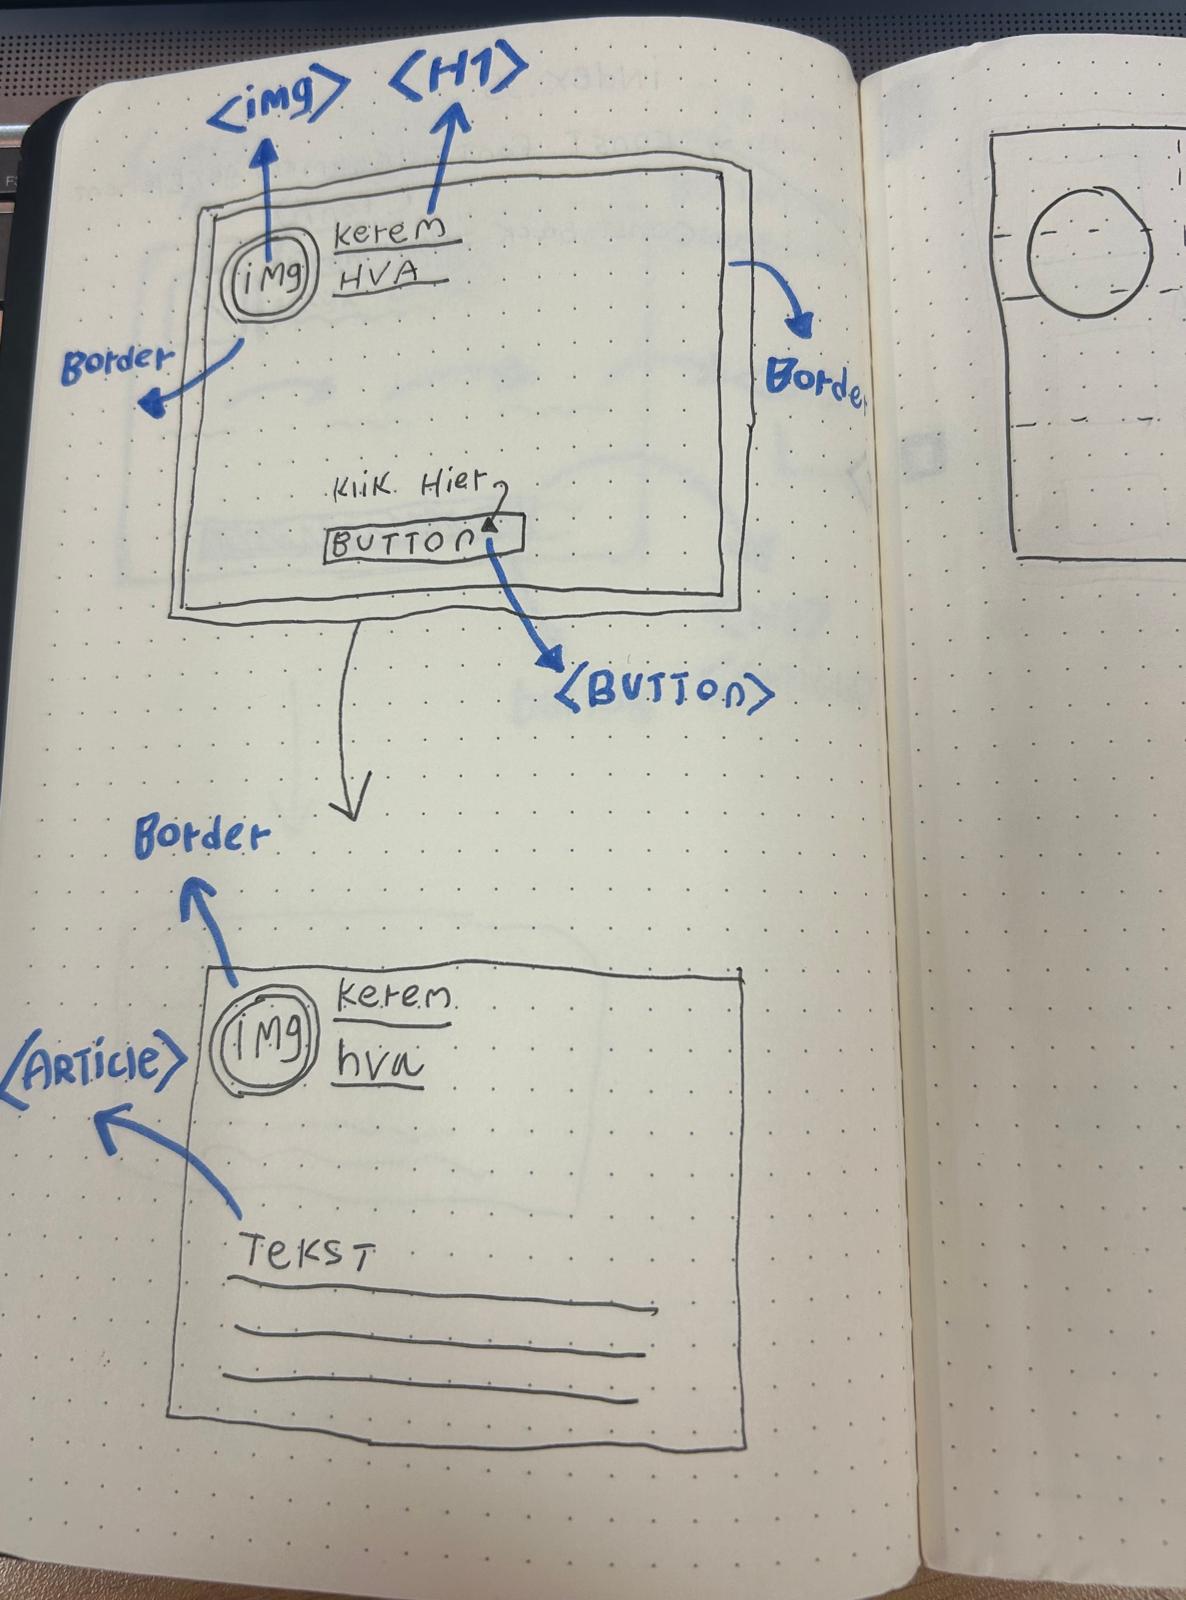 <img>
<H1>
kerem
HVA
img
Border
Border
Klik Hier
BUTTON
<BUTTON>
Border
kerem
img
hva
<ARTICLE>
TEKST